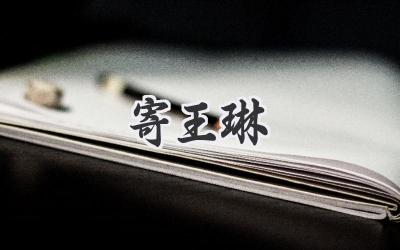 寄王琳